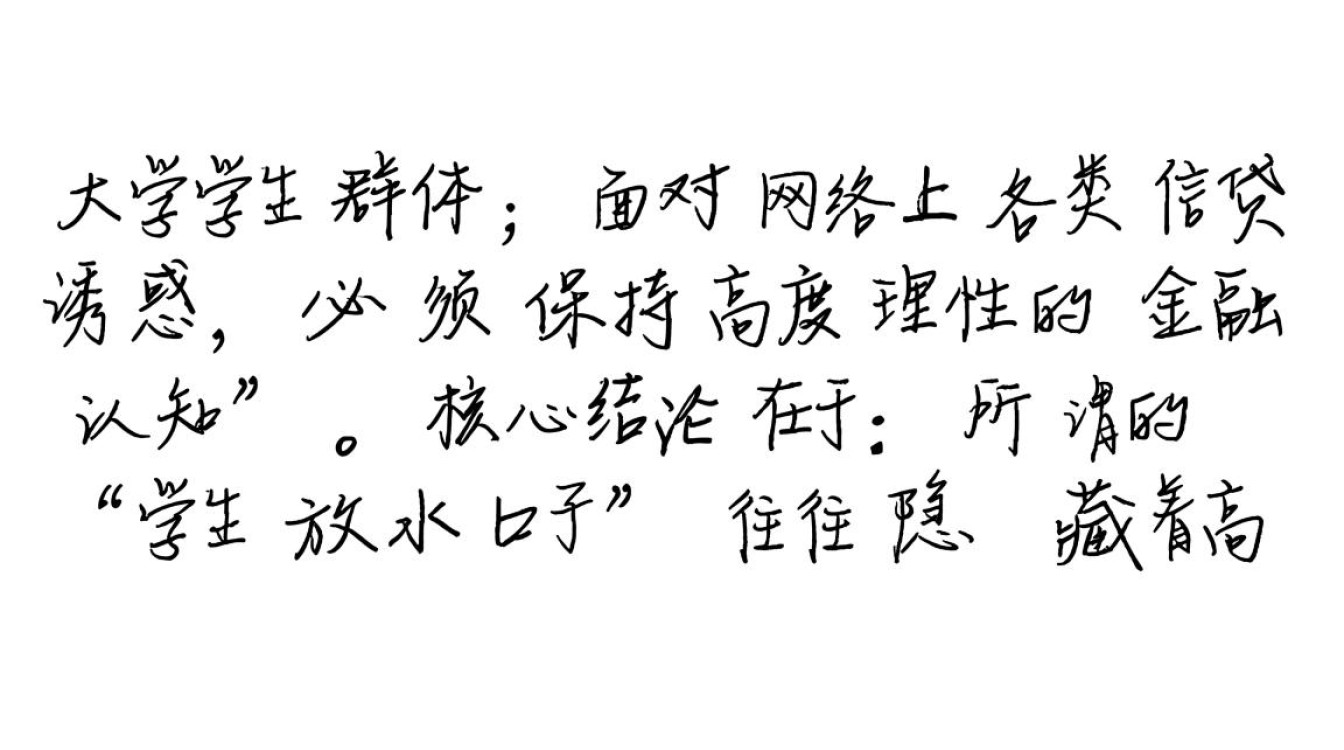 大学学生群体；面对网络上各类信贷
诱惑，必须保持高度理性的金融
认知”。核心结论在于：所谓的
“学生放水口子”往往隐藏着高